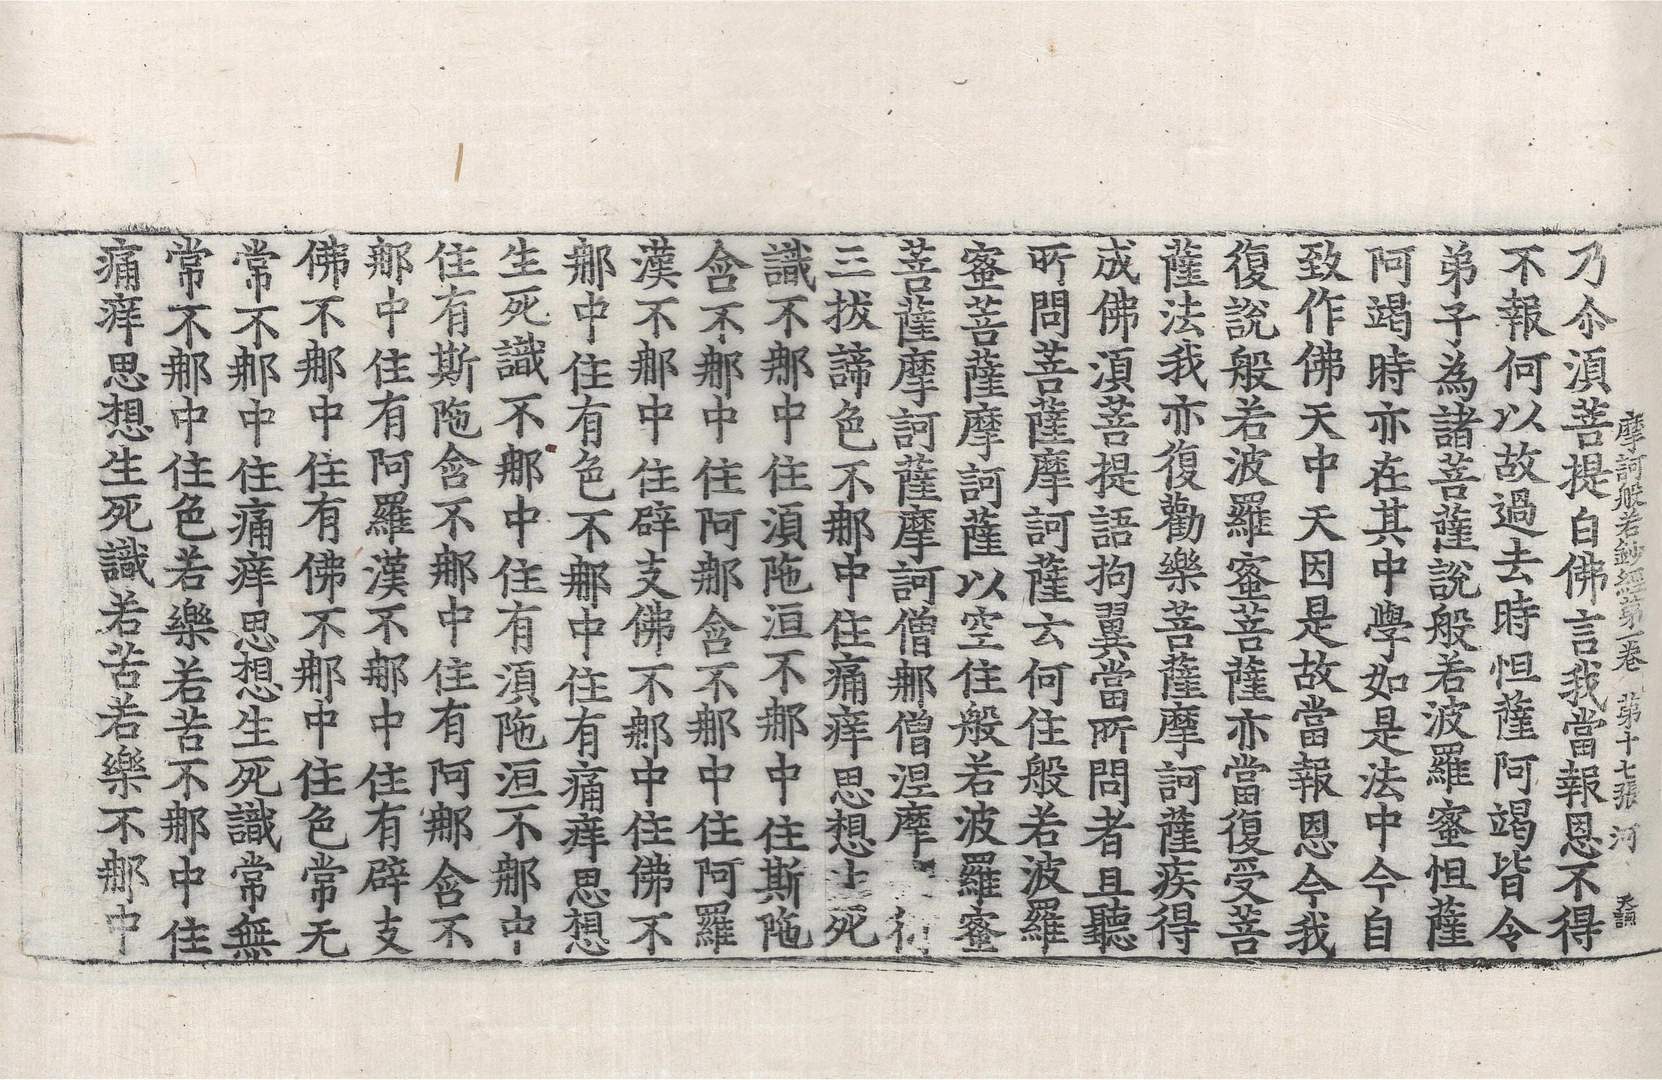 摩訶般若鈔經第一卷 第十七張 河
乃尒湏菩提白佛言我當報恩不得
不報何以故過去時怛薩阿竭皆令
弟子為諸菩薩說般若波羅蜜怛薩
阿竭時亦在其中學如是法中今自
致作佛天中天因是故當報恩今我
復說般若波羅蜜菩薩亦當復受菩
薩法我亦復勸樂菩薩摩訶薩疾得
成佛湏菩提語拘翼當所問者且聽
所問菩薩摩訶薩云何住般若波羅
蜜菩薩摩訶薩以空住般若波羅蜜
菩薩摩訶薩摩訶僧那僧涅摩
三拔諦色不那中住痛痒思想生死
識不那中住湏陁洹不那中住斯陁
含不那中住阿那含不那中住阿羅
漢不那中住辟支佛不那中住佛不
那中住有色不那中住有痛痒思想
生死識不那中住有湏陁洹不那中
住有斯陁含不那中住有阿那含不
那中住有阿羅漢不那中住有辟支
佛不那中住有佛不那中住色常无
常不那中住痛痒思想生死識常無
常不那中住色若樂若苦不那中住
痛痒思想生死識若苦若樂不那中